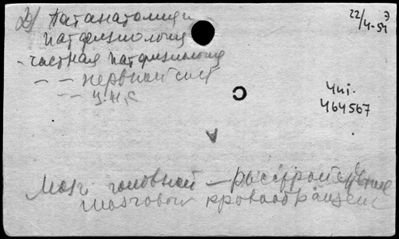 2) Патанатомия и
патфизиология
- частная патфизиология
- - нервной сист
- - ц.н.с
22/4-54
Э
Чит.
464567
А
Мозг головной - расстройство
мозгового кровообращен